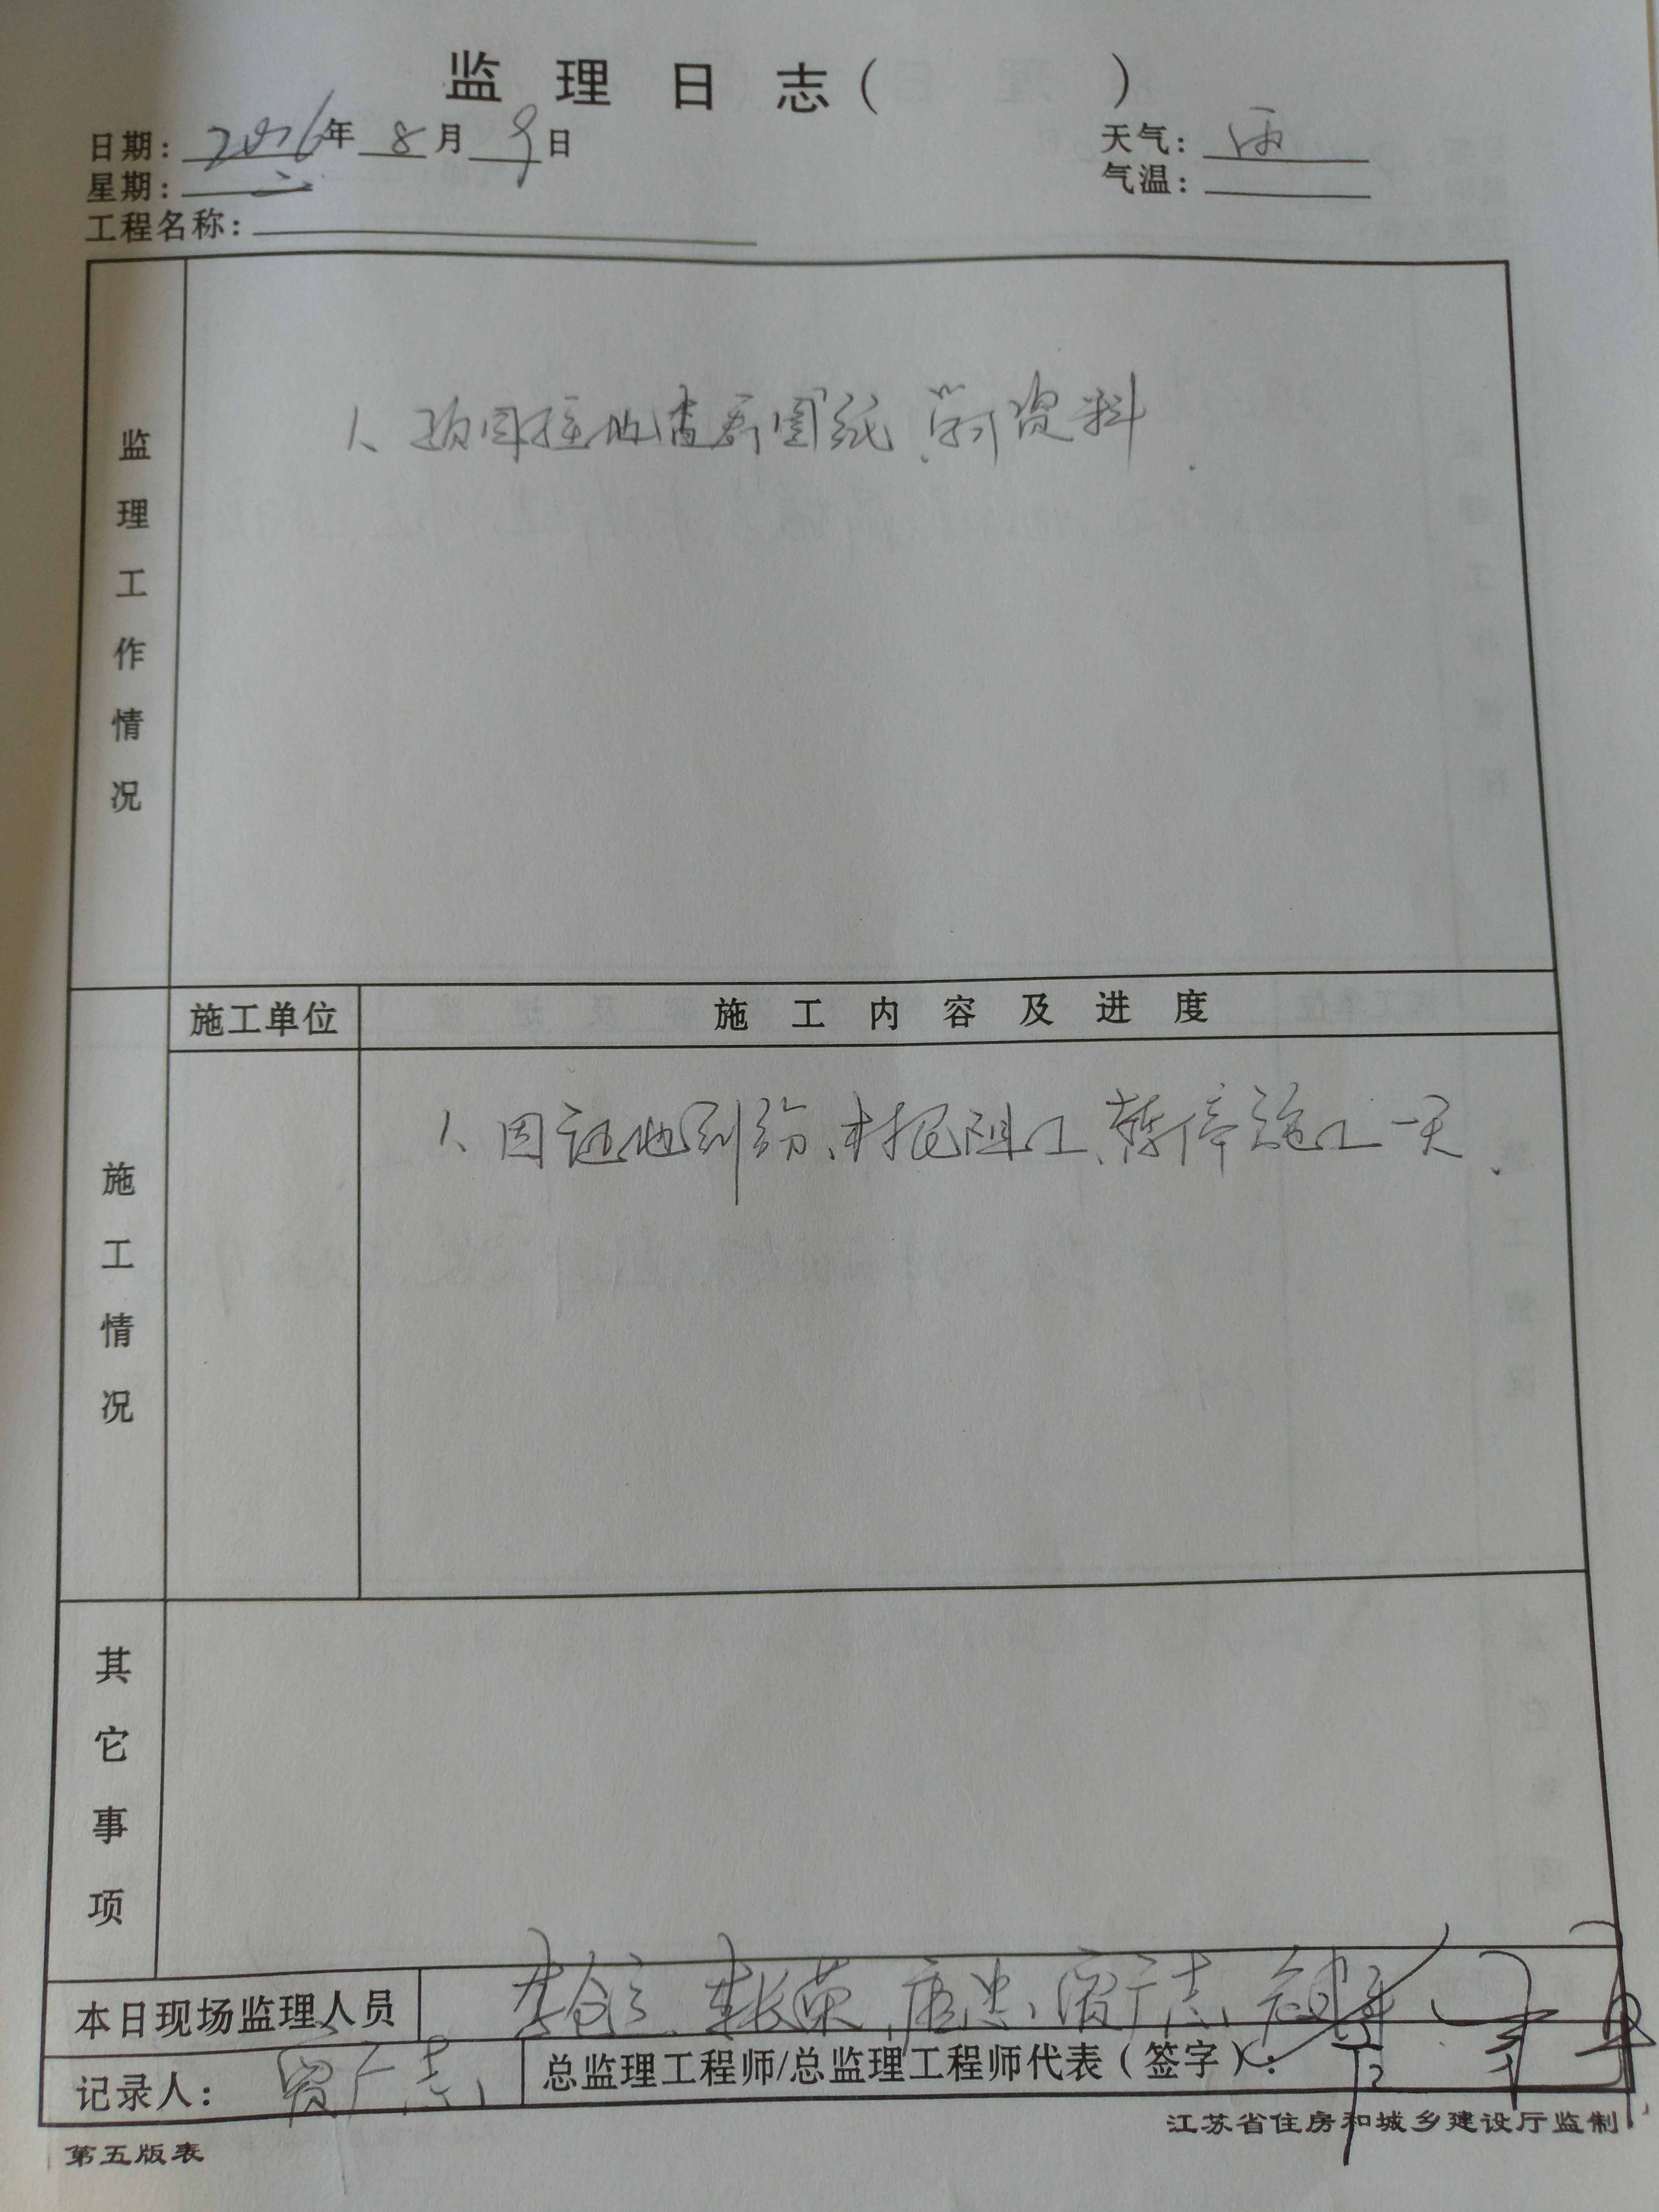 监理日志(        )
日期: 2016年 8月 9日 天气: 雨
星期: 二 气温:
工程名称:
监理工作情况
1、项目驻地查看图纸、学习资料.
施工单位 施工内容及进度
施工情况
1、因征地纠纷、村民阻工、暂停施工一天.
其它事项
本日现场监理人员
记录人: 总监理工程师/总监理工程师代表(签字):
江苏省住房和城乡建设厅监制
第五版表